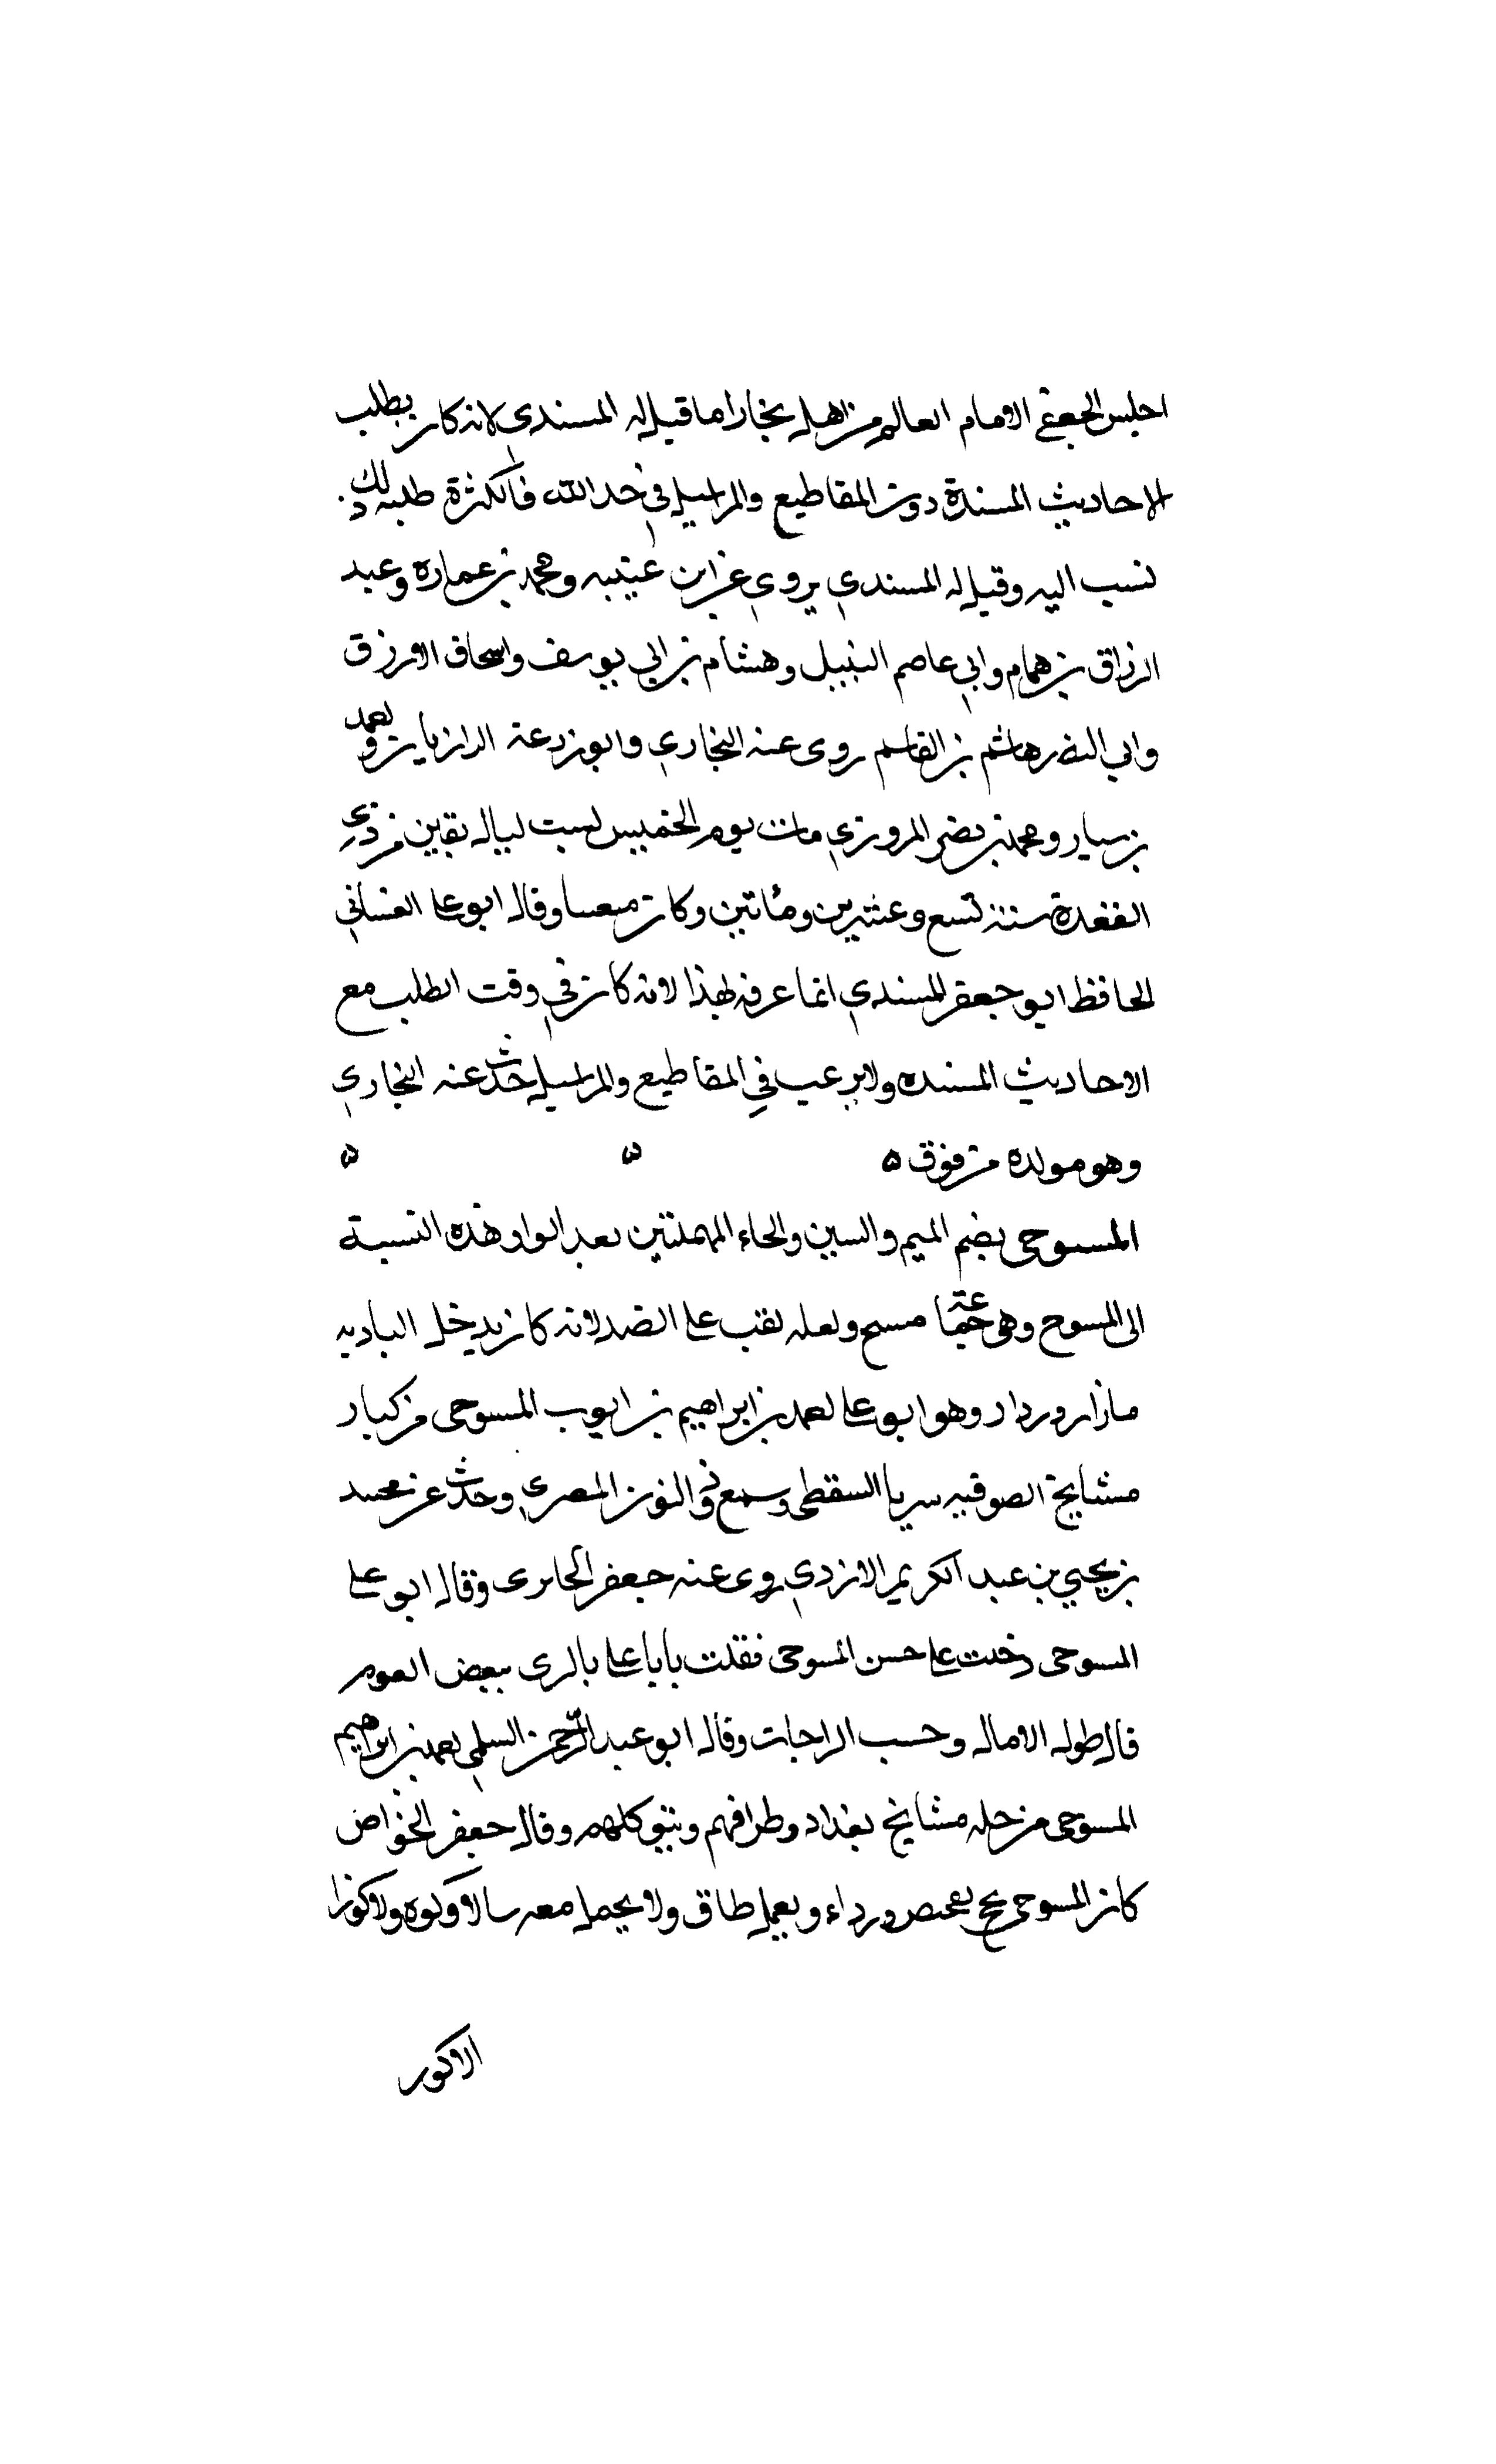 احلبس الجعفي الامام العالم من اهل بخارا اما قيل له المسندي لانه كان يطلب
الاحاديث المسندة دون المقاطيع والمراسيل في حداثته فالكثرة طلبه ذلك
نسب اليه وقيل له المسندي يروي عن ابن عيينه ومحمد بن عماره وعبد
الرزاق بن همام وابي عاصم النبيل وهشام بن ابي يوسف واسحاق الازرق
وابي النضر هاشم بن القاسم روى عنه البخاري وابو زرعة الرازيان واحمد
بن سيار ومحمد بن نصر المروزي مات يوم الخميس لست ليال بقين من ذي
القعدة سنة تسع وعشرين ومائتين وكان وقال ابو علي الغساني
الحافظ ابو جعفر المسندي انما عرف بهذا لانه كان في وقت الطلب مع
الاحاديث المسنده ولا يرعب في المقاطيع والمراسيل حدث عنه البخاري
وهو مولاه من فوق ه ه ه
المسوحي بضم الميم والسين والحاء المهملتين بعد الواو هذه النسبة
الى المسوح وهي مسح ولعله لقب على الضد لانه كان يدخل الباديه
وردا وهو ابو علي احمد بن ابراهيم بن ايوب المسوحي من كبار
مشايخ الصوفيه سريا السقطي وسمع ذو النون المصري وحدث عن محمد
بن يحيى بن عبد الكريم الازدي روى عنه جعفر وقال ابو علي
المسوحي دخلت على حسن المسوحي فقلت يابا علي بالري ببعض
قال طول الامال وحسب الراحات وقال ابو عبد الرحمن السلمي احمد بن ابراهيم
المسوحي من جله مشايخ بغداد وظرافهم ومتوكليهم وقال جعفر الخواص
كان المسوحي يحج بقميص ورداء ونعل طاق ولا يحمل معه ولا كوزا
الاكور